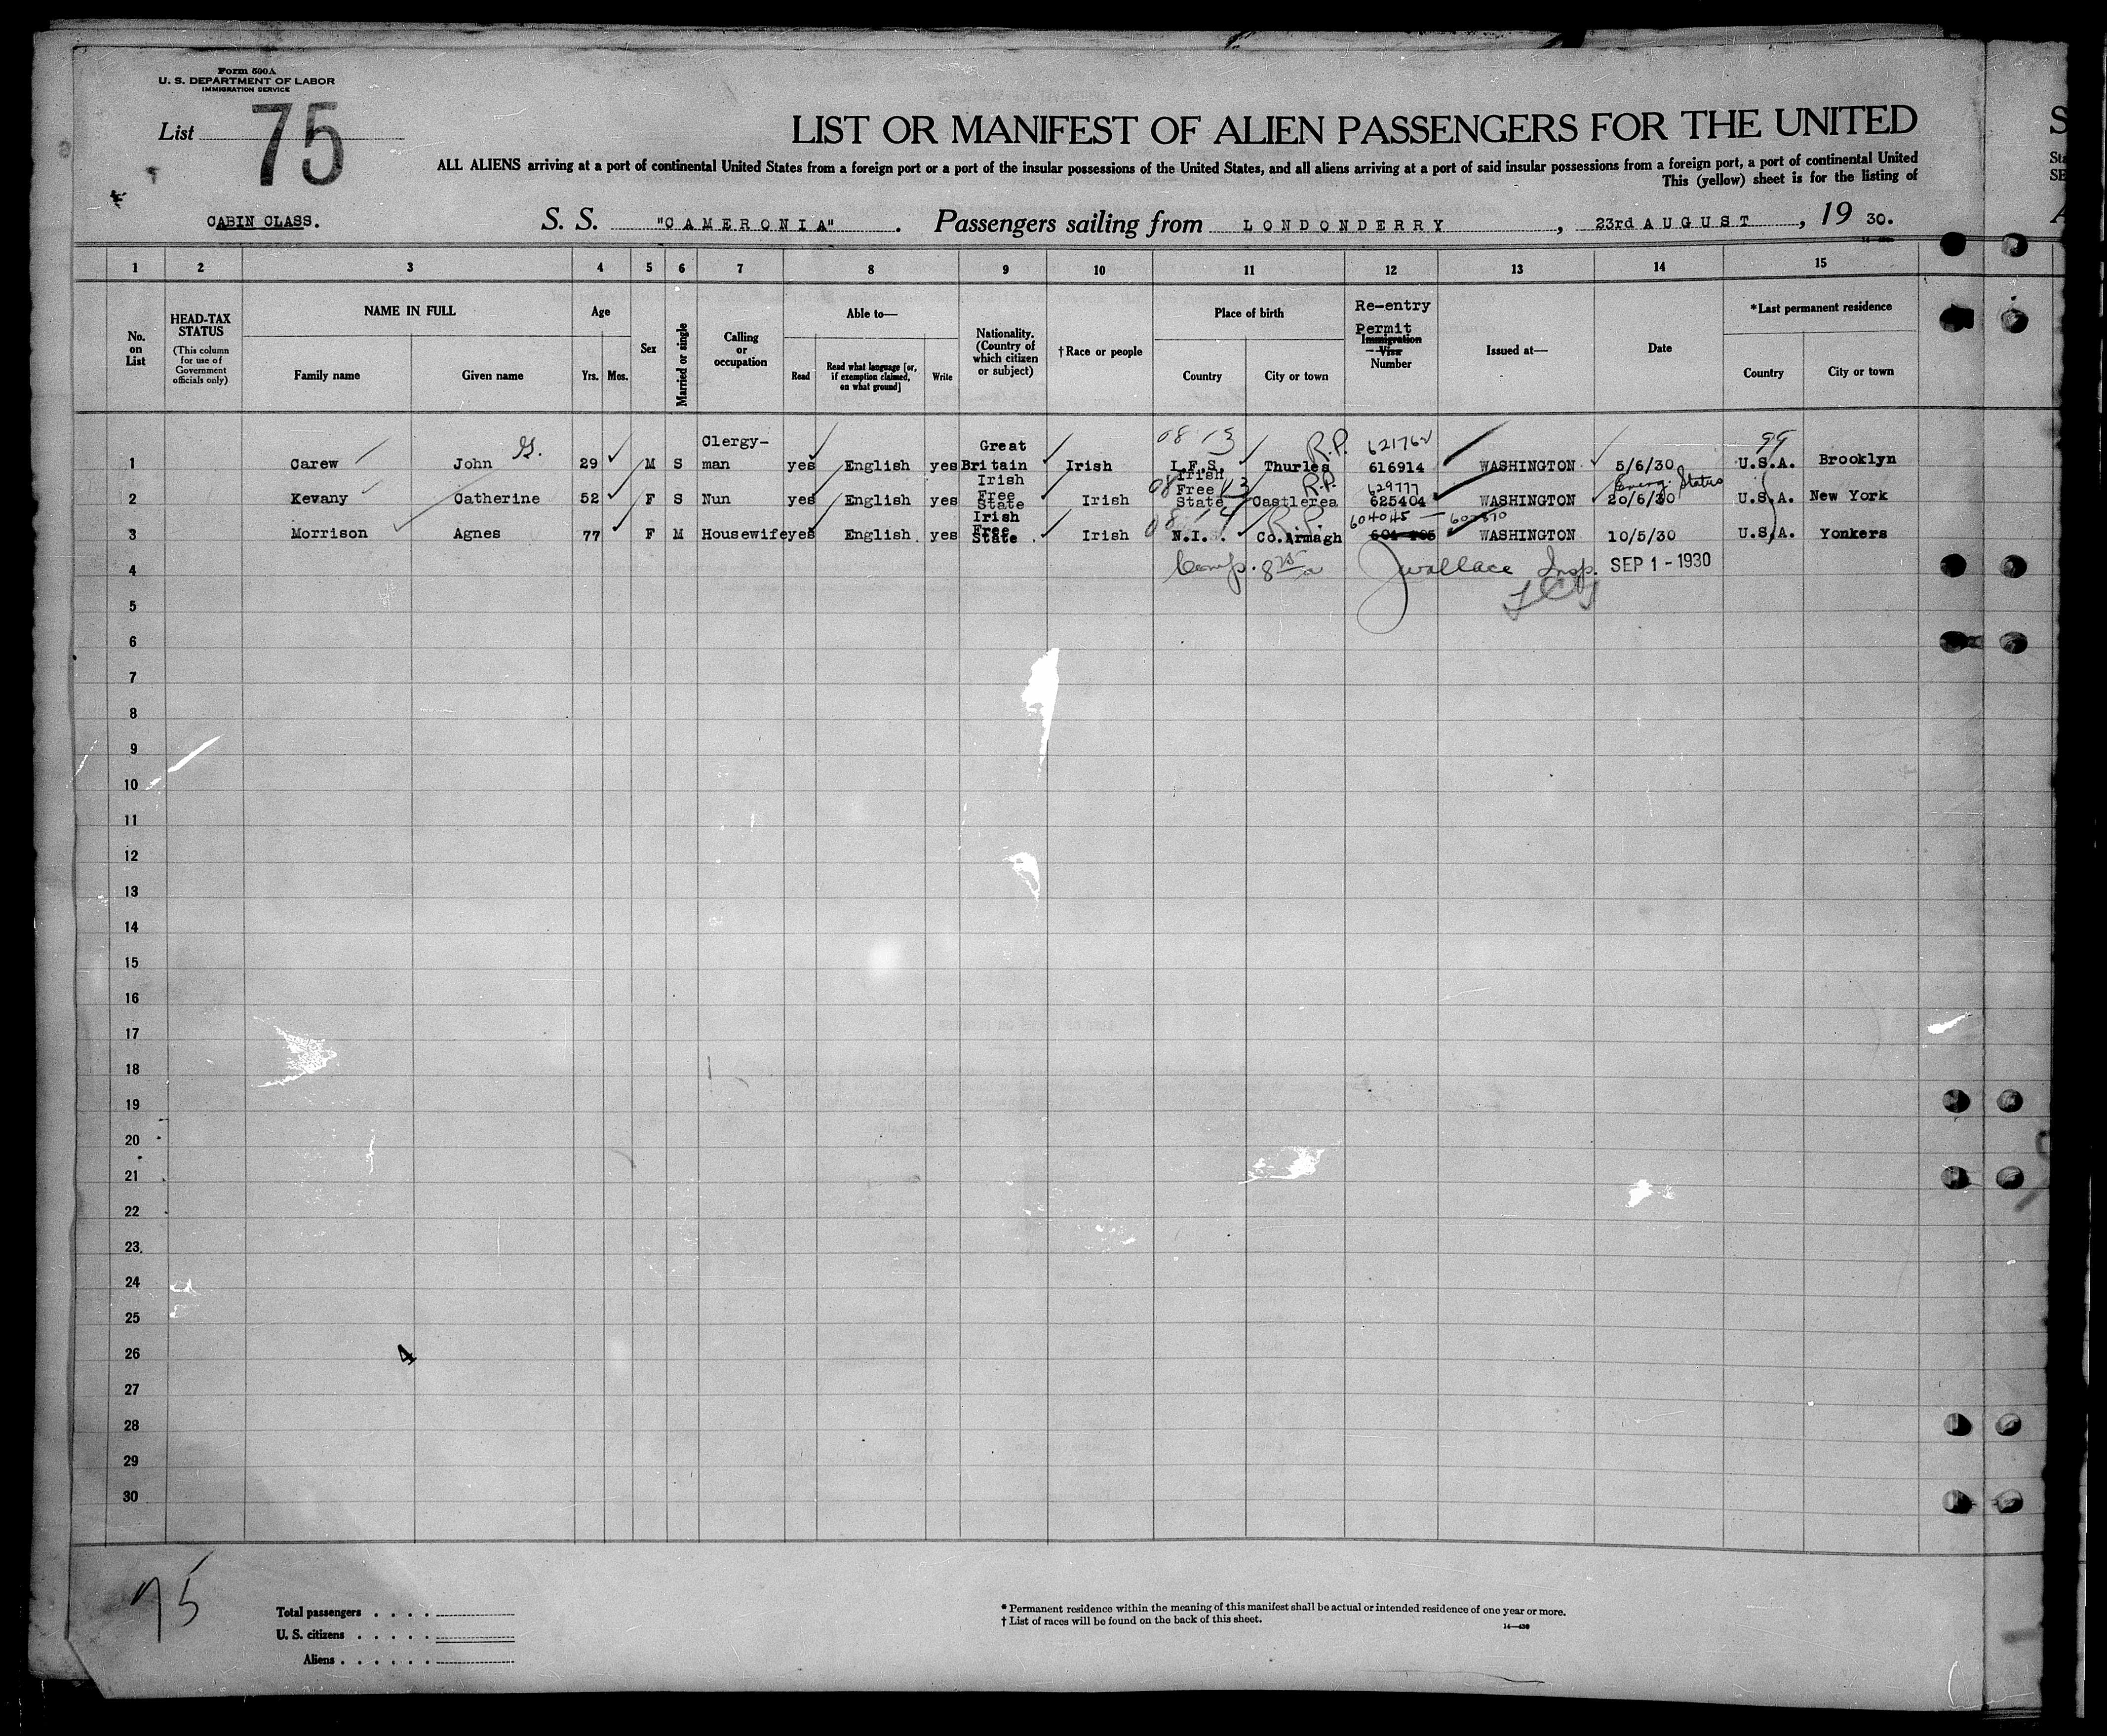 Form 500A
U. S. DEPARTMENT OF LABOR
IMMIGRATION SERVICE
List 75
LIST OR MANIFEST OF ALIEN PASSENGERS FOR THE UNITED
ALL ALIENS arriving at a port of continental United States from a foreign port or a port of the insular possessions of the United States, and all aliens arriving at a port of said insular possessions from a foreign port, a port of continental United
This (yellow) sheet is for the listing of
CABIN CLASS. S. S. "CAMERONIA". Passengers sailing from LONDONDERRY, 23rd AUGUST, 19 30.
1 2 3 4 5 6 7 8 9 10 11 12 13 14 15
No. on List
HEAD-TAX STATUS
(This column for use of Government officials only)
NAME IN FULL
Family name Given name
Age
Yrs. Mos.
Sex
Married or single
Calling or occupation
Able to—
Read
Read what language [or, if exemption claimed, on what ground]
Write
Nationality. (Country of which citizen or subject)
†Race or people
Place of birth
Country City or town
Re-entry Permit
Immigration Visa
Number
Issued at—
Date
*Last permanent residence
Country City or town
1 Carew John G. 29 M S Clergy-man yes English yes Great Britain Irish I.F.S. Thurles R.P. 621762 616914 WASHINGTON 5/6/30 99 U.S.A. Brooklyn
2 Kevany Catherine 52 F S Nun yes English yes Irish Free State Irish 08 Irish Free State Castlerea R.P. 629777 625404 WASHINGTON 20/6/30 Status U.S.A. New York
3 Morrison Agnes 77 F M Housewife yes English yes Irish Free State Irish 08 N.I. Co.Armagh R.P. 604045 WASHINGTON 10/5/30 U.S.A. Yonkers
4 Comp. Wallace Insp. SEP 1 - 1930
5
6
7
8
9
10
11
12
13
14
15
16
17
18
19
20
21
22
23
24
25
26
4
27
28
29
30
75
Total passengers
U. S. citizens
Aliens
* Permanent residence within the meaning of this manifest shall be actual or intended residence of one year or more.
† List of races will be found on the back of this sheet.
14—430